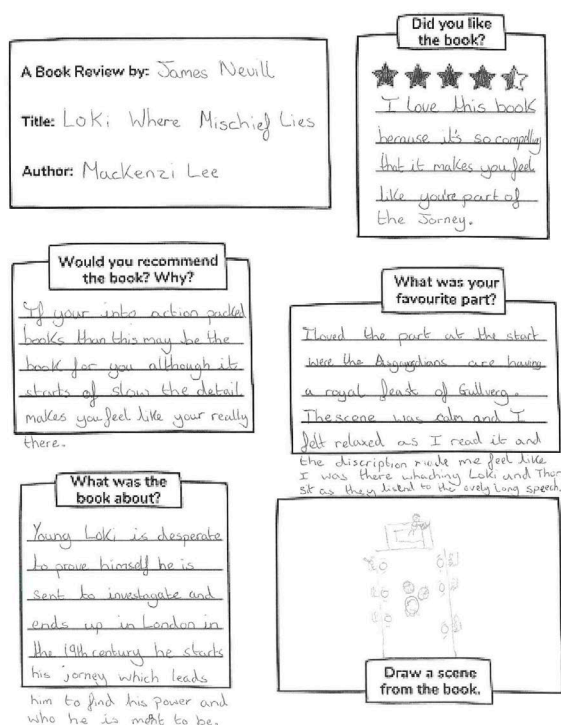 A Book Review by: James Nevill
Title: Loki Where Mischief Lies
Author: Mackenzi Lee
Did you like
the book?
I love this book
because it's so compelling
that it makes you feel
like you're part of
the Jorney.
Would you recommend
the book? Why?
If your into action packed
books than this may be the
book for you although it
starts of slow the detail
makes you feel like your really
there.
What was your
favourite part?
I loved the part at the start
were the Asgardians are having
a royal feast of Gullveig.
The scene was calm and I
felt relaxed as I read it and
the discription made me feel like
I was there whaching Loki and Thor
sit as they listend to the overly long speech.
What was the
book about?
Young Loki is desperate
to prove himself he is
sent to investagate and
ends up in London in
the 19th century he starts
his jorney which leads
him to find his power and
who he is ment to be.
Draw a scene
from the book.